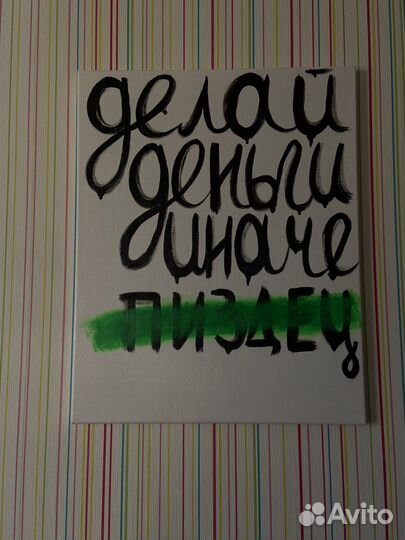 делай
деньги
иначе
ПИЗДЕЦ
Avito